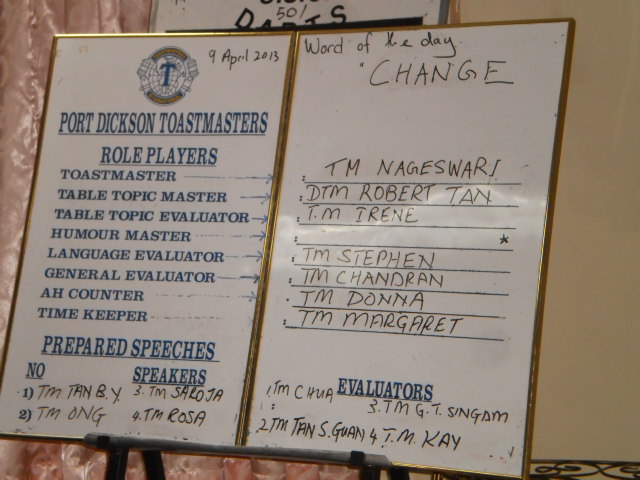 50/
9 April 2013
T
PORT DICKSON TOASTMASTERS
ROLE PLAYERS
TOASTMASTER
TABLE TOPIC MASTER
TABLE TOPIC EVALUATOR
HUMOUR MASTER
LANGUAGE EVALUATOR
GENERAL EVALUATOR
AH COUNTER
TIME KEEPER
PREPARED SPEECHES
NO SPEAKERS
1) TM TAN B.Y. 3. TM SAROJA
2) TM ONG 4. TM ROSA
Word of the day
"CHANGE
: TM NAGESWARI
: DTM ROBERT TAN
: T.M IRENE
: *
: TM STEPHEN
: TM CHANDRAN
: TM DONNA
: TM MARGARET
EVALUATORS
1. TM CHUA 3. TM G.T. SINGAM
2. TM TAN S. GUAN 4. T.M. KAY